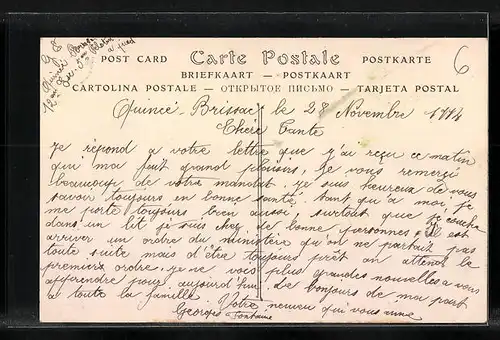 POST CARD Carte Postale POSTKARTE
BRIEFKAART — POSTKAART
CARTOLINA POSTALE — ОТКРЫТОЕ ПИСЬМО — TARJETA POSTAL
6
Quincé Brissac le 28 Novembre 1914
Chere Tante
Je répond a votre lettre que j'ai reçu ce matin
qui ma fait grand plaisirs, Je vous remerçi
beaucoup de votre mandat. je suis heureux de vous
savoir toujours en bonne santé. tant qu'a moi, je
me porte toujours bien aussi, surtout que je couche
dans un lit je suis chez de bonne personnes. Il est
arriver un ordre du ministère qu'on ne partait pas
toute suite mais d'être toujours prêt on attend le
premiers ordre. je ne vois plus grandes nouvelles a vous
apprendre pour aujourd'hui. Le bonjours de ma part
a toute la famille. Votre neveu qui vous aime
Georges Fontaine